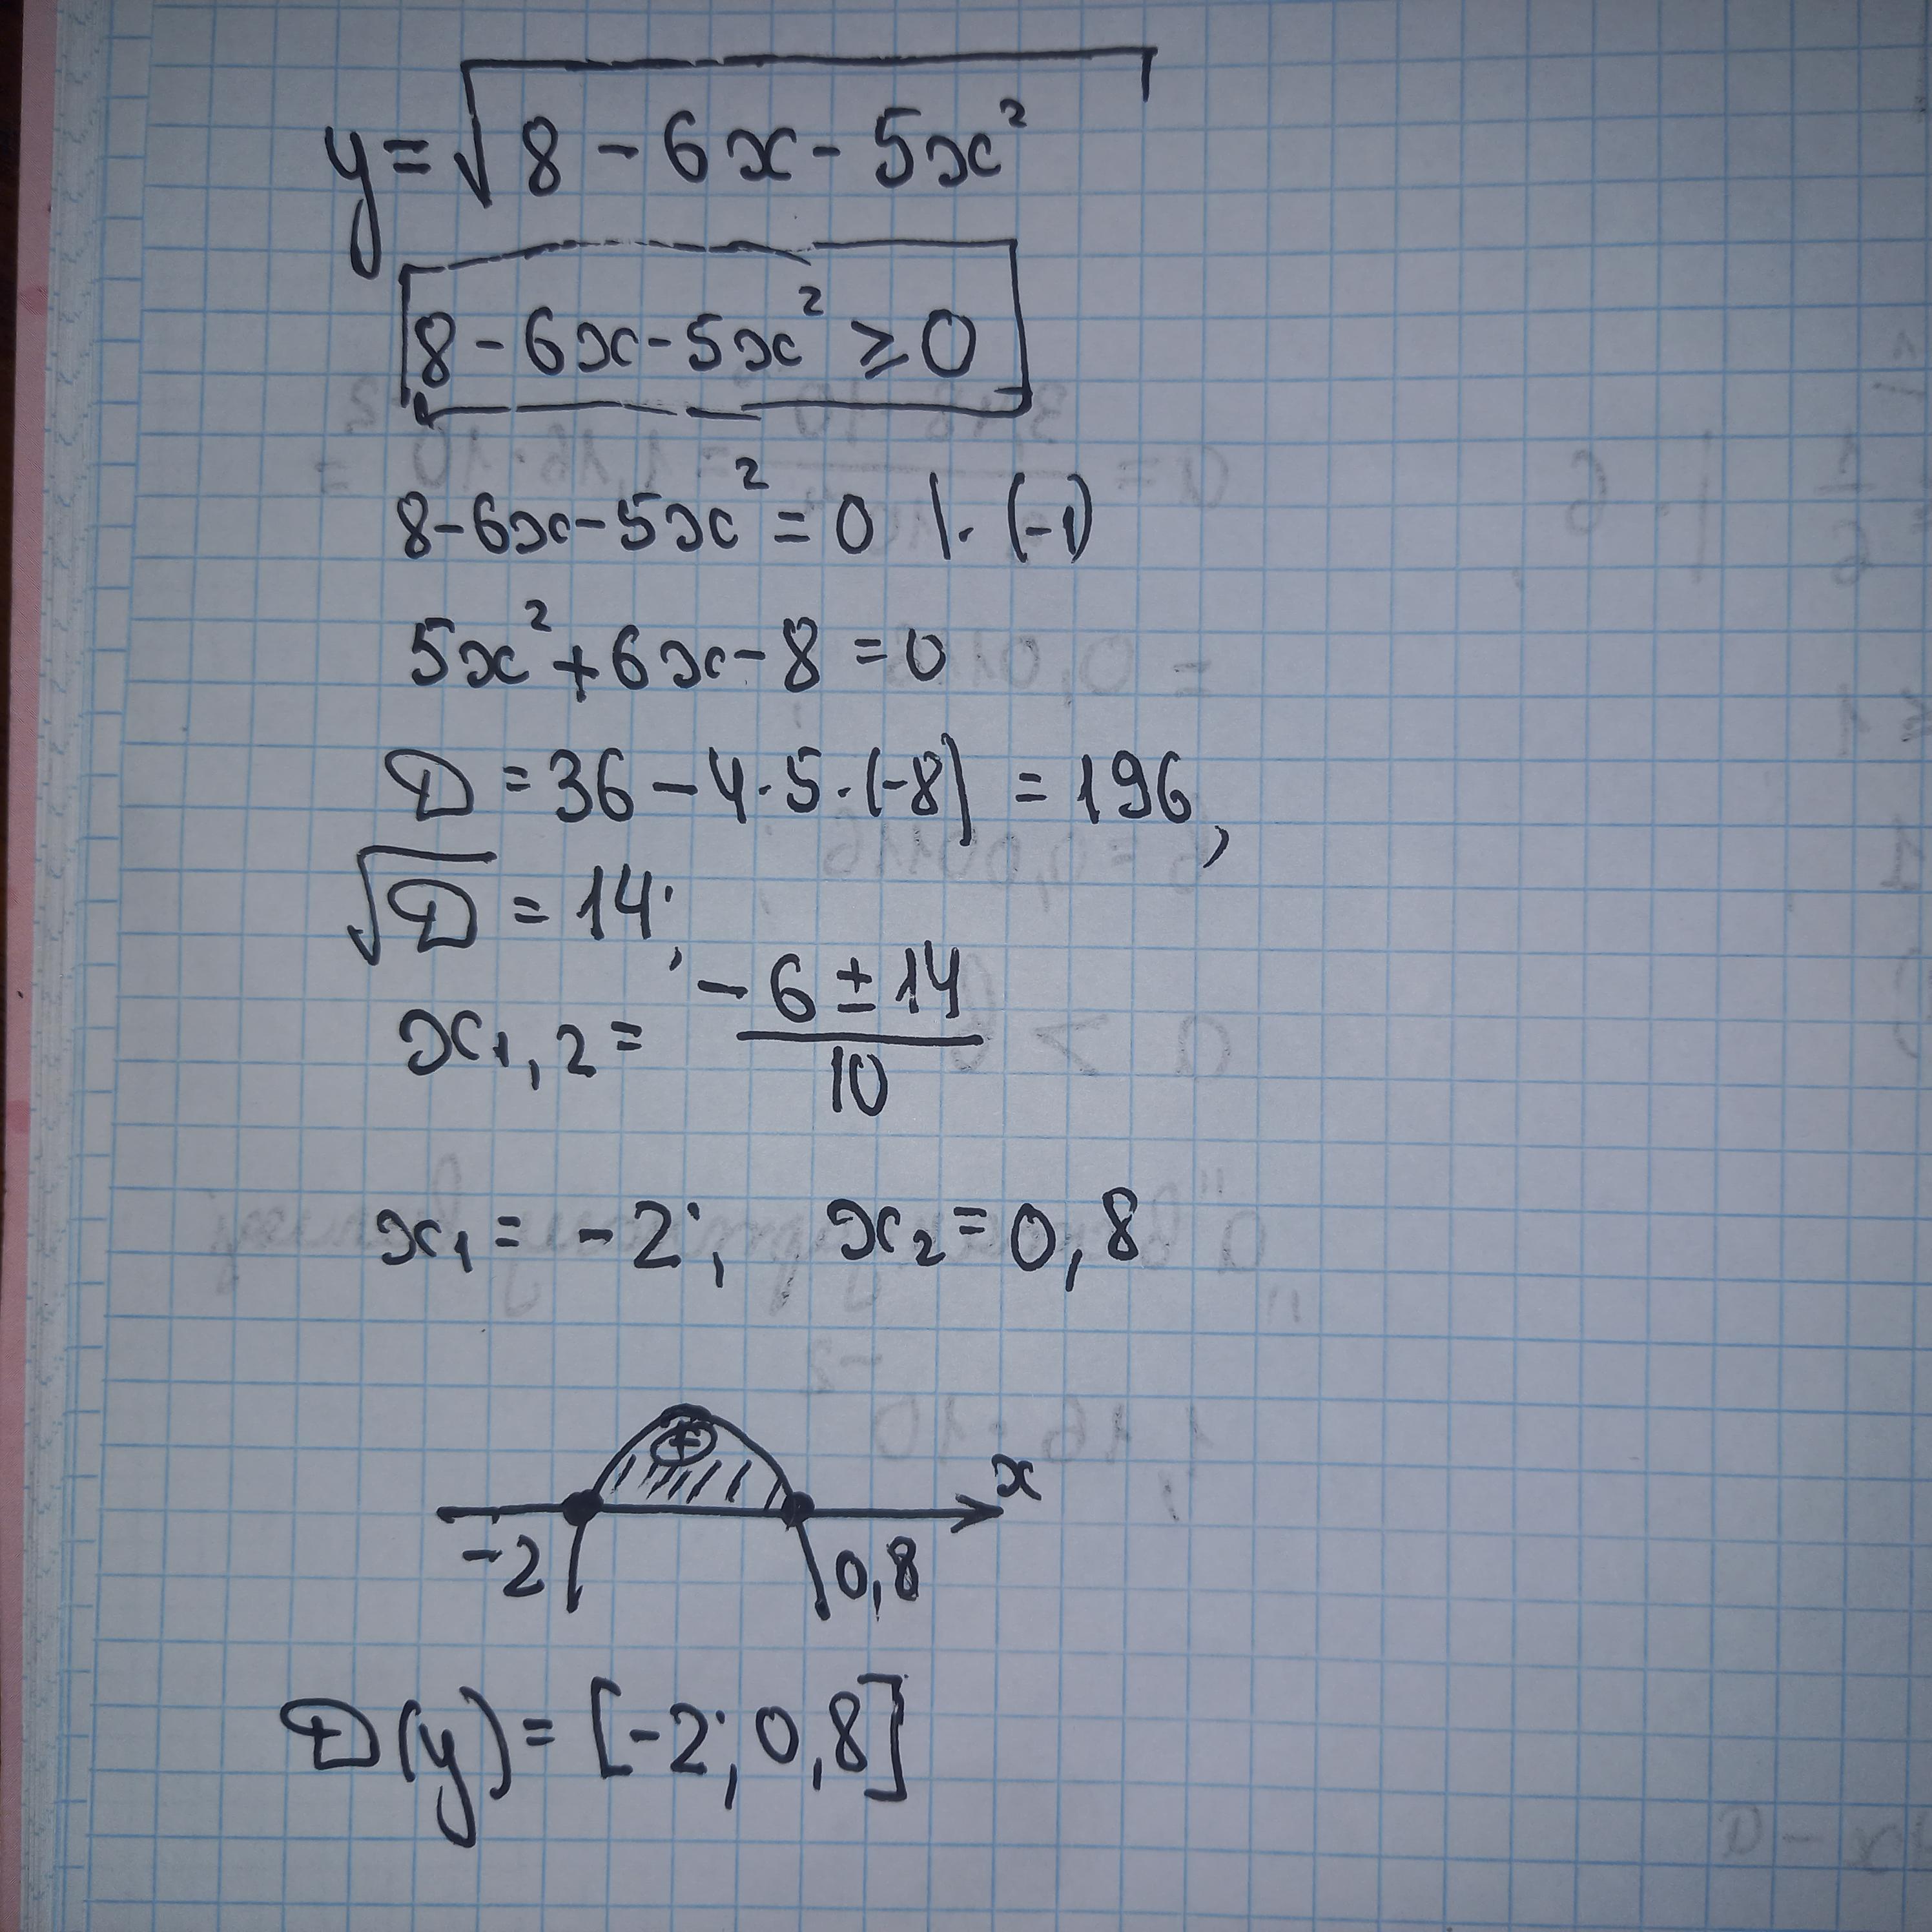 y = √(8 - 6x - 5x²)
8 - 6x - 5x² ≥ 0
8 - 6x - 5x² = 0 |· (-1)
5x² + 6x - 8 = 0
D = 36 - 4·5·(-8) = 196,
√D = 14;
x₁,₂ = (-6 ± 14)/10
x₁ = -2; x₂ = 0,8
+
x
-2 0,8
D(y) = [-2; 0,8]